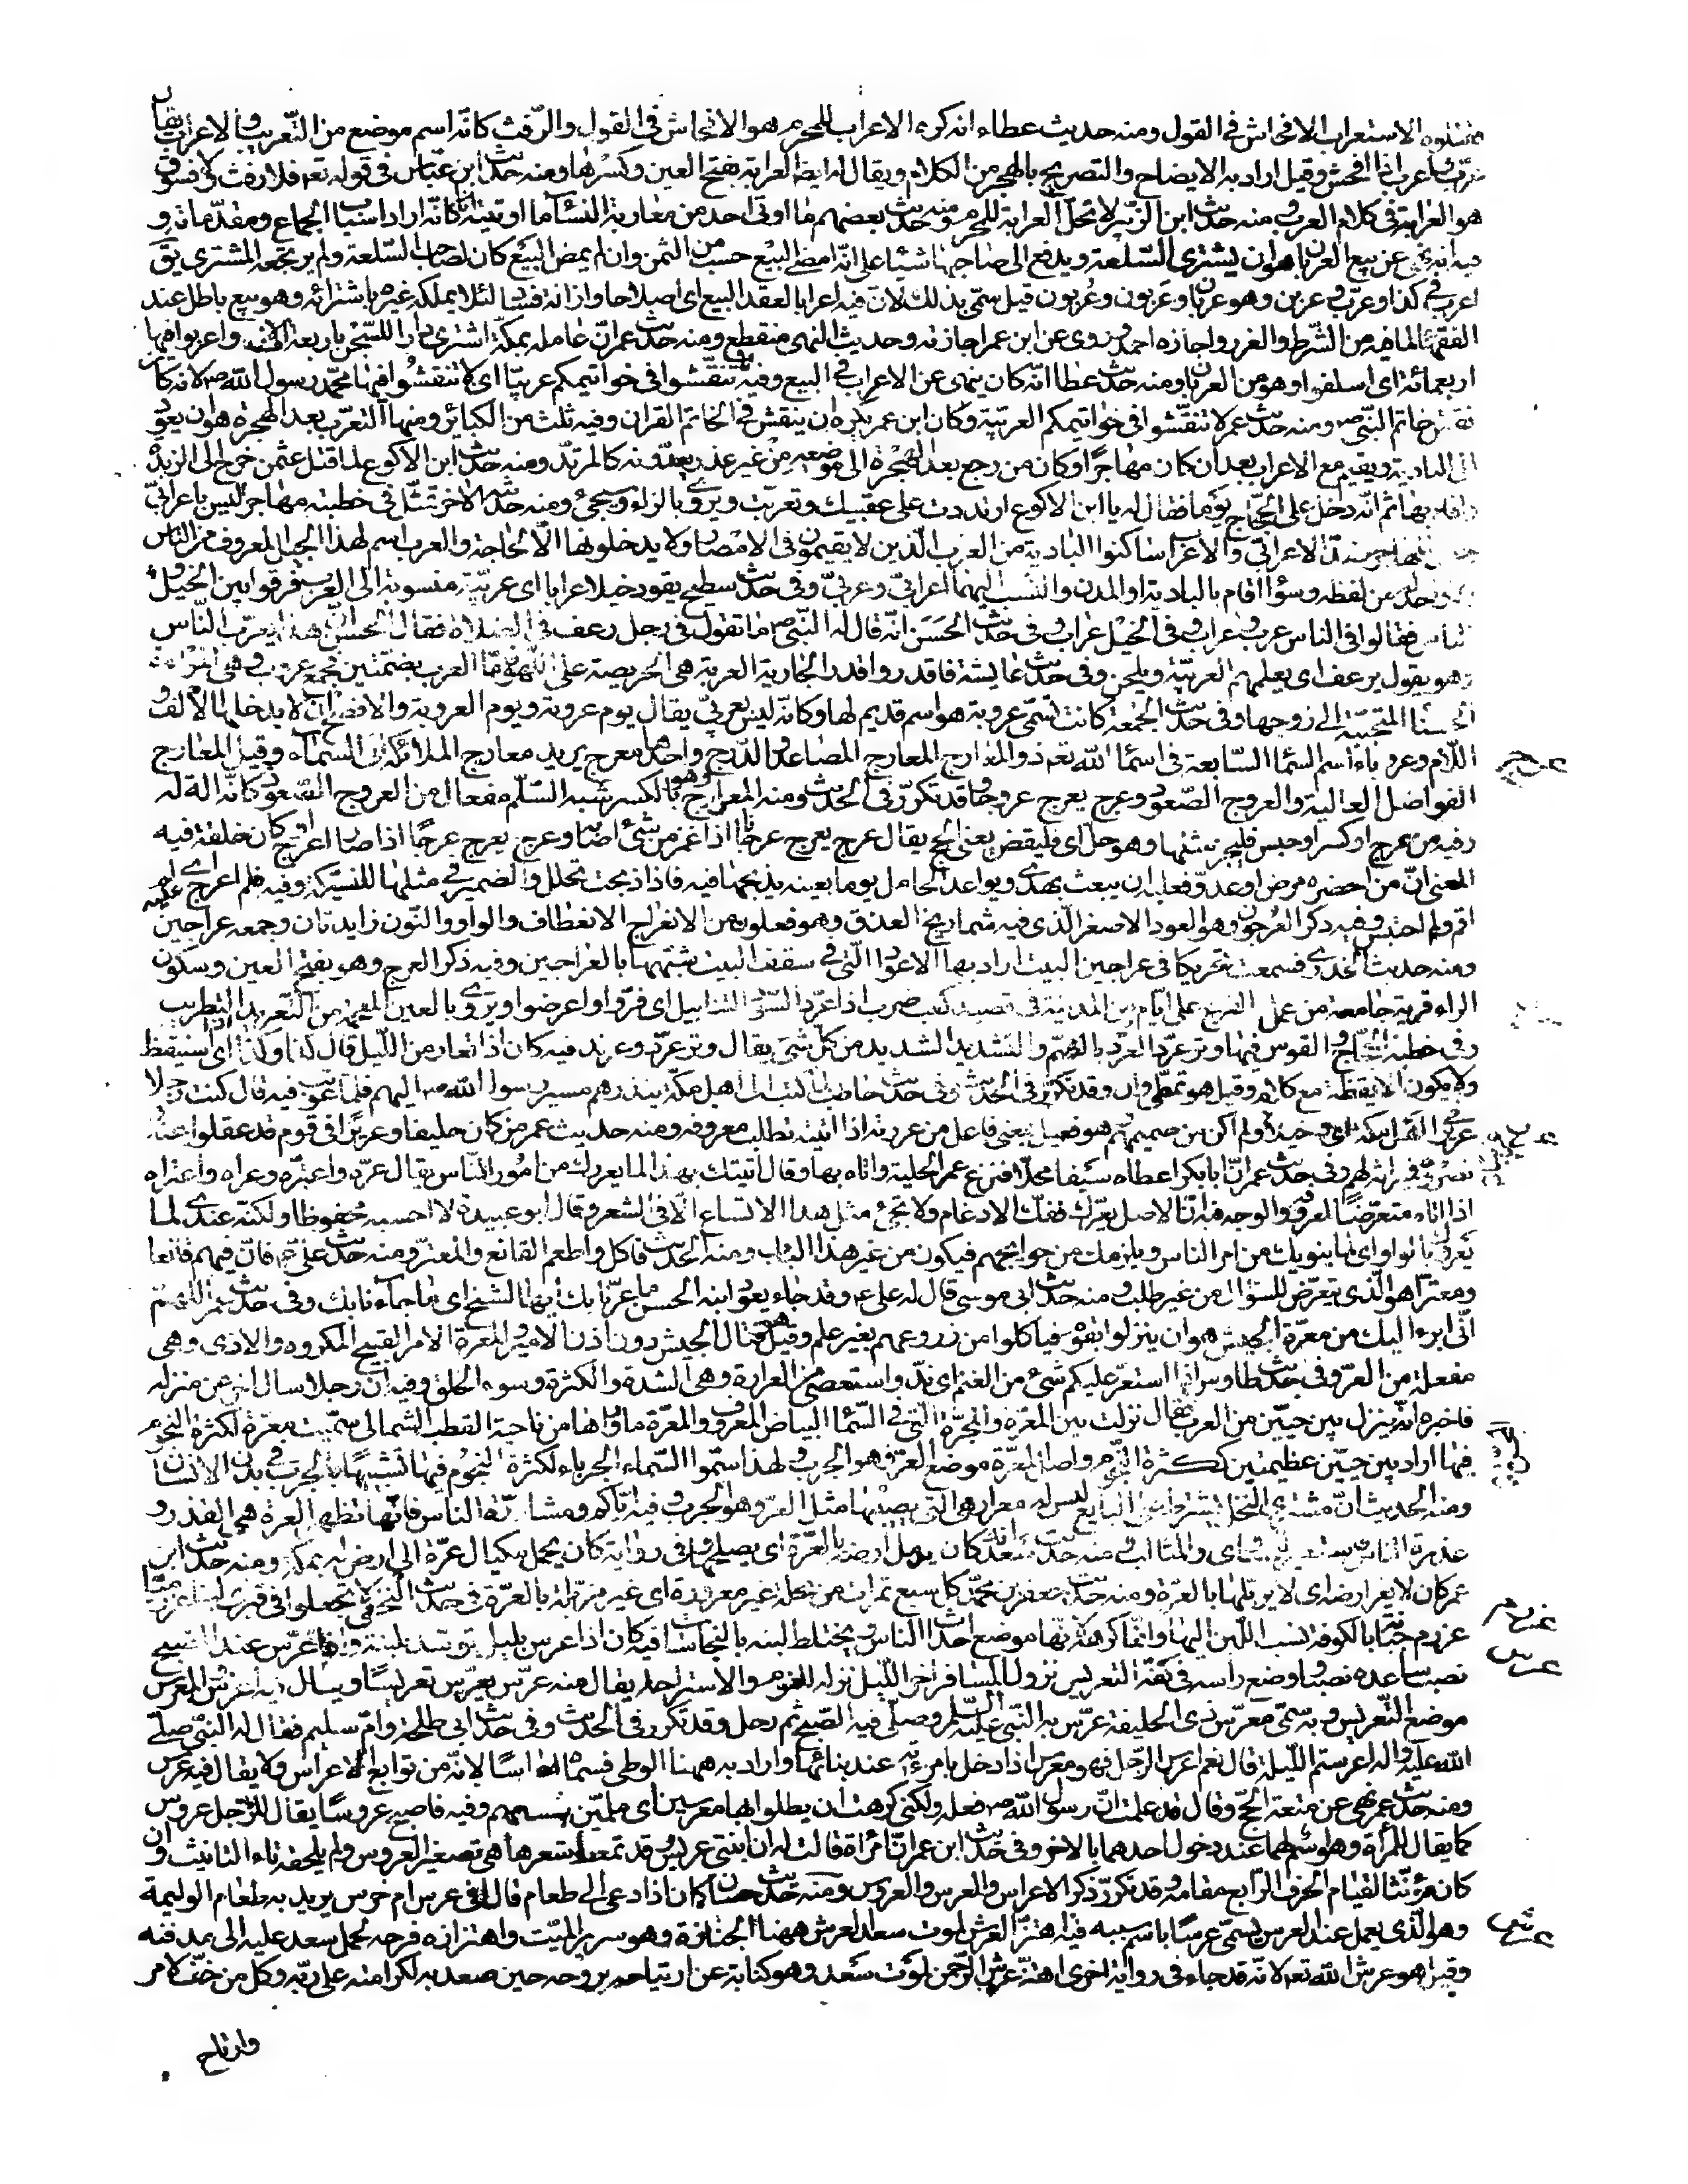 الاستعراب الافحاش في القول ومنه حديث عطاء انه كره الاعراب للمحرم هو الافحاش في القول والرّفث كانّه اسم موضع من التّعريب والاعراب يقال
عرّب واعرب اذا افحش وقيل اراد به الايضاح والتصريح بالهجر من الكلام ويقال له ايضا العرابة بفتح العين وكسرها ومنه حديث ابن عبّاس في قوله تعه فلا رفث ولا فسوق
هو العرابة في كلام العرب ومنه حديث ابن الزّبير لا تحلّ العرابة للمحرم ومنه حديث بعضهم ما اوتى احد من معاربة النسآء ما اوتيته انا كانّه اراد اسباب الجماع ومقدّماته و
فيه انه نهى عن بيع العربان هو ان يشترى السّلعة ويدفع الى صاحبها شيئا على انّه ان امضى البيع حسب من الثمن وان لم يمض البيع كان لصاحب السّلعة ولم يرتجعه المشترى يق
اعرب في كذا وعرّب وعربن وهو عربان وعَربون وعُربون قيل سمّى بذلك لانّ فيه اعرابا لعقد البيع اى اصلاحا وازالة فساد لئلا يملكه غيره باشترائه وهو بيع باطل عند
الفقهآء لما فيه من الشّرط والغرر واجازه احمد وروى عن ابن عمر اجازته وحديث النهى منقطع ومنه حديث عمر انّ عامله بمكّة اشترى دارا للسّجن باربعة الاف واعربوا فيها
اربعمائة اى اسلفوا وهو من العربان ومنه حديث عطا انّه كان ينهى عن الاعراب في البيع وفيه لا تنقّشوا في خواتيمكم عربيّا اى لا تنقشوا فيها محمّد رسول الله ص لانه كان
نقش خاتم النّبي ص ومنه حديث عمر لا تنقّشوا في خواتيمكم العربيّة وكان ابن عمر يكره ان ينقش في الخاتم القران وفيه ثلث من الكبائر منها التعرّب بعد الهجرة هو ان يعود
الى البادية ويقيم مع الاعراب بعد ان كان مهاجرًا وكان من رجع بعد الهجرة الى موضعه من غير عذر يعدّونه كالمرتدّ ومنه حديث ابن الاكوع لما قتل عثمن خرج الى الربذة
واقام بها ثم انّه دخل على الحجّاج يوما فقال له يا ابن الاكوع ارتددت على عقبيك وتعربّت ويروى بالزاء وسيجئ ومنه حديثه الاخر تمثّل في خطبته مهاجر ليس باعرابىّ
جعل المهاجر ضدّ الاعرابىّ والاعراب ساكنوا البادية من العرب الّذين لا يقيمون في الامصار ولا يدخلونها الّا لحاجة والعرب اسم لهذا الجيل المعروف من الناس
ولا واحد له من لفظه وسوآ اقام بالبادية او المدن والنسب اليهما اعرابىّ وعربىّ وفي حديث سطيح يقود خيلا عرابا اى عربيّة منسوبة الى العرب فرقوا بين الخيل و
الناس فقالوا في الناس عرب واعراب وفي الخيل عراب وفي حديث الحَسَن انّه قال له البتّى ما تقول في رجل رعف في الصّلاة فقال الحسن انّ هذا يعرّب الناس
وهو يقول رعف اى يعلمهم العربيّة ويلحن وفي حديث عايشة فاقدروا قدر الجارية العربة هي الحريصة على اللّهو فامّا العرب بضمّتين فجمع عروب وهي المرءة
الحسنآ المتحبّبة الى زوجها وفي حديث الجمعة كانت تسمّى عروبة هو اسم قديم لها وكانّه ليس بعربىّ يقال يوم عروبة ويوم العروبة والافصح ان لا يدخلها الالف و
اللّام وعروباء اسم السّمآ السّابعة في اسمآ الله تعه ذو المعارج المعارج المصاعد والدّرج واحدها معرج يريد معارج الملائكة الى السّمآء وقيل المعارج
الفواضل العالية والعروج الصّعود وعرج يعرج عروجا وقد تكرّر في الحديث ومنه المعراج وهو بالكسر شبه السّلّم مفعال من العروج الصّعود كانّه الة له
وفيه من عرج او كسر او حبس فليجز مثلها وهو حلّ اى فليقض يعنى الحج يقال عرج يعرج عرجانا اذا غمز من شئ اصابه وعرج يعرج عرجًا اذا صار اعرج او كان خلقة فيه
المعنى انّ من احصره مرض او عدوّ فعليه ان يبعث بهدى ويواعد الحامل يوما بعينه يذبحها فيه فاذا ذبحت تحلّل والضمير في مثلها للنسيكة وفيه فلم اعرج عليه اى لم
اقم ولم احتبس وفيه ذكر العُرجون وهو العود الاصفر الّذى فيه شماريخ العذق وهو فعلون من الانعراج الانعطاف والواو والنّون زايدتان وجمعه عراجين
ومنه حديث الخدرى فسمعت تحريكا في عراجين البيت اراد بها الاعواد الّتى في سقف البيت شبّهها بالعراجين وفيه ذكر العرج وهو بفتح العين وسكون
الراء قرية جامعة من عمل الفرع على ايّام من المدينة في قصيد كعب ضرب اذا عرّد السّود التنابيل اى فرّوا واعرضوا ويروى بالغين المعجمة من التّغريد التطريب
وفي خطبة الحجّاج والقوس فيها وتر عردّ العردّ بالضمّ والتشديد الشديد من كلّ شئ يقال وتر عردّ وعرند فيه كان اذا تعارّ من اللّيل قال كذا وكذا اى استيقظ
ولا يكون الّا يقظة مع كلام وقيل هو تمطّى وانّ وقد تكرّر في الحديث وفي حديث حاطب لمّا كتب الى اهل مكّة ينذرهم مسير رسول الله ص اليهم فلمّا عوتب فيه قال كنت رجلا
عريرًا في اهل مكة اى دخيلا ولم اكن من صميمهم هو فعيل بمعنى فاعل من عررته اذا اتيته تطلب معروفه ومنه حديث عمر من كان حليفا وعريرًا في قوم قد عقلوا عنه و
نصروه فميراثه لهم وفي حديث عمر انّ ابا بكر اعطاه سيفا محلّا فنزع عمر الحلية واتاه بها وقال اتيتك بهذا لما يعررك من امور النّاس يقال عرّه واعترّه وعراه واعتراه
اذا اتاه متعرّضًا لمعروفه والوجه فيه انّ الاصل يعرّك ففكّ الادغام ولا يجئ مثل هذا الاتساع الّا في الشعر وقال ابو عبيدة لا احسبه محفوظا ولكنّه عندى لما
يَعروك بالواو اى لما ينوبك من امر الناس ويلزمك من حوائجهم فيكون من غير هذا الباب ومنه الحديث فاكل واطعم القانع والمعترّ ومنه حديث علىّ ع فانّ فيهم قانعا
ومعترّا هو الّذى يتعرّض للسؤال من غير طلب ومنه حديث ابى موسى قال له على ع وقد جاء يعود ابنه الحسن ما عرّنا بك ايّها الشيخ اى ما جآء نا بك وفي حديث عمر اللهمّ
انّى ابرء اليك من معرّة الجيش هو ان ينزلوا بقوم فياكلوا من زروعهم بغير علم وقيل هو قتال الجيش دون اذن الامير والمعرّة الامر القبيح المكروه والاذى وهي
مفعلة من العرّ وفي حديث طاوس اذا استعرّ عليكم شئ من الغنم اى ندّ واستعصى من العرارة وهي الشدة والكثرة وسوء الخلق وفيه انّ رجلا سال اخر عن منزله
فاخبره انّه ينزل بين حيّين من العرب فقال نزلت بين المعرّة والمجرّة المجرّة الّتى في السّمآ البياض المعروف والمعرّة ماورآءها من ناحية القطب الشمالى سمّيت معرّة لكثرة النجوم
فيها اراد بين حيّين عظيمين ككثرة النّجوم واصل المعرّة موضع العرّ وهو الجرب ولهذا سمّوا السّماء الجرباء لكثرة النجوم فيها تشبيهًا بالجرب في بدن الانسان
ومنه الحديث انّ مشترى النخل يشترط على البايع ليس له معرار هي الّتى يصيبها مثل العرّ وهو الجرب وفيه ايّاكم ومشارّة الناس فانّها تظهر العرّة هي القذر و
عذرة الناس فاستعير للمساوى والمثالب ومنه حديث سعد انّه كان يدمل ارضه بالعرّة اى يصلحها وفي رواية كان يحمل مكيال عرّة الى ارض له بمكة ومنه حديث ابن
عمر كان لا يعرّ ارضه اى لا يزبّلها بالعرّة ومنه حديث جعفر بن محمّد كل سبع تمرات من نخلة غير معرورة اى غير مزبّلة بالعرّة في حديث النخعى لا تجعلوا في قبرى لبنا عرزميّا
عرزم جبّانة بالكوفة نسب اللّبن اليها وانّما كرهه لانّها موضع احداث الناس ويختلط لبنه بالنجاسات فيه كان اذا عرس بليل توسّد لبنة واذا عرّس عند الصّبح
نصب ساعده نصبًا ووضع راسه في كفّه التعريس نزول المسافر اخر اللّيل نزلة للنوم والاستراحة يقال منه عرّس يعرّس تعريسًا ويقال فيه اعرس والمعرّس
موضع التّعريس وبه سمّى معرّس ذى الحليفة عرّس به النّبى عليه السلم وصلّى فيه الصّبح ثم رحل وقد تكرّر في الحديث وفي حديث ابى طلحة وامّ سليم فقال له النّبى صلى
الله عليه واله اعرستم اللّيلة قال نعم اعرس الرّجل فهو معرس اذا دخل بامرءته عند بنائها واراد به ههنا الوطى فسمّاه اعراسًا لانّه من توابع الاعراس ولا يقال فيه عرّس
ومنه حديث عمر نهى عن متعة الحجّ وقال قد علمت انّ رسول الله ص فعله ولكنّى كرهت ان يظلوا بها معرسين اى ملمّين بنسائهم وفيه فاصبح عروسًا يقال للرّجل عروس
كما يقال للمرأة وهو اسم لهما عند دخول احدهما بالاخر وفي حديث ابن عمر انّ امرأة قالت له ان ابنتى عريّس قد تمعط شعرها هي تصغير العروس ولم يلحقه تاء التانيث وان
كان مؤنّثا لقيام الحرف الرّابع مقامه وقد تكرّر ذكر الاعراس والعرس والعروس ومنه حديث حسان كان اذا دعى الى طعام قال افي عرس ام خرس يريد به طعام الوليمة
وهو الّذى يعمل عند العرس يسمّى عرسًا باسم سببه فيه اهتزّ العرش لموت سعد العرش ههنا الجنازة وهو سرير الميّت واهتزازه فرحه لحمل سعد عليه الى مدفنه
وقيل هو عرش الله تعه لانّه قد جاء في رواية اخرى اهتزّ عرش الرّحمن لموت سعد وهو كناية عن ارتياحه بروحه حين صعد به لكرامته على ربّه وكل من خفّ لامر
وارتاح
عرج
عرجون
عرزم
عرس
عرش